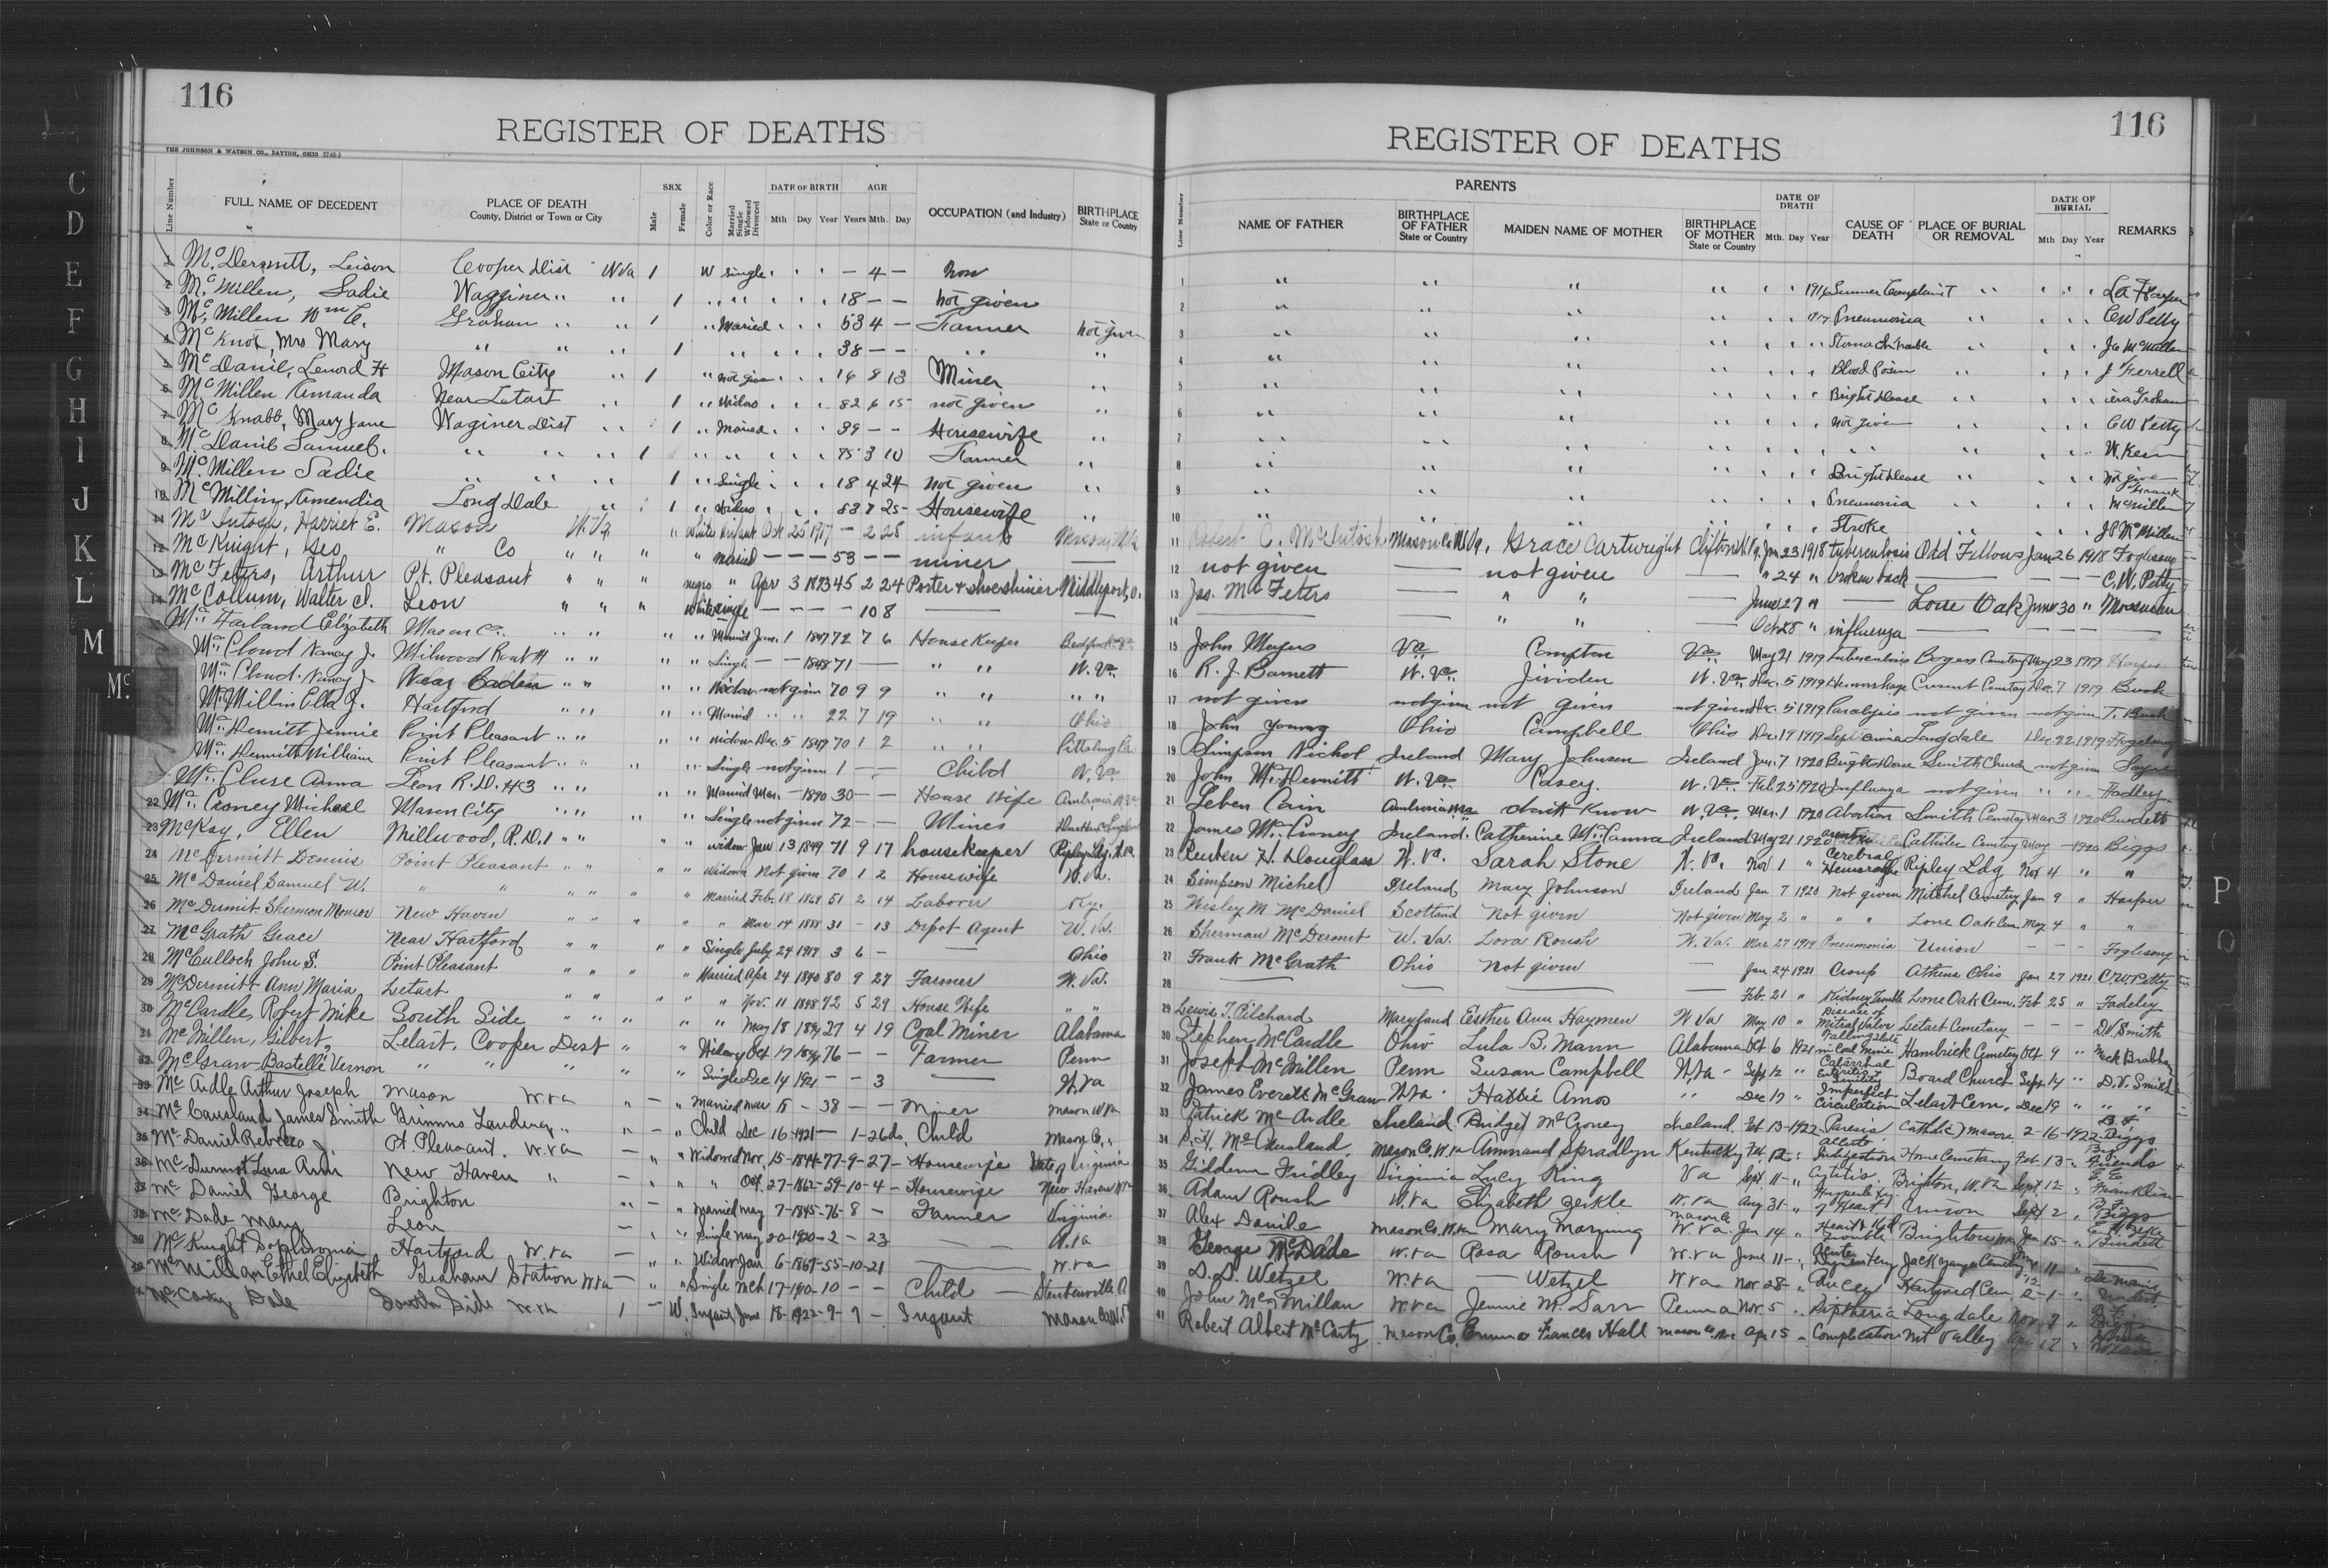 116
REGISTER OF DEATHS
THE JOHNSON & WATSON CO., DAYTON, OHIO 5740-3
Line Number FULL NAME OF DECEDENT PLACE OF DEATH County, District or Town or City SEX Male Female Color or Race Married Single Widowed Divorced DATE OF BIRTH Mth Day Year AGE Years Mth. Day OCCUPATION (and Industry) BIRTHPLACE State or Country
1 McDermitt, Leison Cooper Dist W Va 1 W Single - 4 - non
2 McMillen, Sadie Wagginer " " 1 " " 18 - - not given
3 McMillen Wm C. Graham " " 1 " Maried 53 4 - Farmer not given
4 McKnot, Mrs Mary " " " 1 " " 38 - - " "
5 McDanil, Lenord H Mason City " 1 " not given 14 8 13 Miner "
6 McMillen Amanda Near Letart " 1 " Widow 82 6 15 not given "
7 McKnabb, Mary Jane Waginer Dist " 1 " Maried 39 - - Housewife "
8 McDanil Samuel. " " " 1 " " 75 3 10 Farmer "
9 McMillen Sadie " " " 1 " Single 18 4 24 not given "
10 McMillin, Amendia Long Dale " 1 " Widow 83 7 25 Housewife "
11 McIntosh, Harriet E. Mason W.Va. " White Infant Oct 25 1917 - 2 28 infant Mason, W.Va
12 McKnight, Geo " Co " " " " maried - - - 53 - - miner
13 McFeters, Arthur Pt. Pleasant " " " negro " Apr 3 1873 45 2 24 Porter & shoeshiner Middleport, O.
14 McCollum, Walter J. Leon " " " White single - - - - 10 8
McFarland Elizabeth Mason Co. " " " " Maried June 1 1847 72 7 6 House Keeper
McCloud Nancy J. Milwood Rout #1 " " " " Single - - 1848 71 - " " W. Va.
McCloud. Nancy J. Near Baden " " " " Widow not given 70 9 9 " " " "
McMillin Ella J. Hartford " " " " Maried " " 22 7 19 " " Ohio
McDermitt Jennie Point Pleasant " " " " Widow Dec. 5 1849 70 1 2 " " Pittsburg Pa
McDermitt William Point Pleasant " " " " Single not given 1 - - Child W. Va.
McClure Anna Leon R.D. #3 " " " " Maried Mar. - 1890 30 - - House Wife
22 McCroney Michael Mason City " " " " Single not given 72 - - Mines
23 McKay, Ellen Millwood, R.D.1 " " " " widow Jan 13 1849 71 9 17 housekeeper Ripley Ldg. W.Va.
24 McDermitt Dennis Point Pleasant " " " " Widown Not given 70 1 2 Housewife W. Va.
25 McDaniel Samuel W. " " " " " " Married Feb. 18 1869 51 2 14 Laborer Ky.
26 McDermit. Sherman Monroe New Haven " " " " " Mar 14 1888 31 - 13 Depot Agent W. Va.
27 McGrath Grace Near Hartford " " " " Single July 24 1917 3 6 - Ohio
28 McCulloch John S. Point Pleasant " " " " Married Apr 24 1840 80 9 27 Farmer W. Va.
29 McDermitt Ann Maria Letart " " " " " Nov. 11 1848 72 5 29 House Wife " "
30 McCardle, Robert Mike South Side " " " " " May 18 1894 27 4 19 Coal Miner Alabama
31 McMillen, Gilbert, Letart, Cooper Dist " " Widowy Oct 17 76 - - Farmer Penn
32 McGraw Bastelle Vernon " " " " " Single Dec 14 1921 - - 3 W. Va
33 McArdle Arthur Joseph Mason W. Va " - " Married Mar 15 - 38 - - Miner Mason W Va
34 McCausland James Smith Brinns Landing " " - " Child Dec 16 - 1921 - 1 - 26 ds. Child Mason Co. "
35 McDaniel Rebecca J Pt. Pleasant. W. Va - " " Widowed Nov. 15 - 1844 - 77 - 9 - 27 - Housewife State of Virginia
36 McDurmot Lura Ann New Haven " - " " " Oct. 27 - 1862 - 59 - 10 - 4 - Housewife New Haven W Va
37 McDaniel George Brighton " - " Married May 7 - 1845 - 76 - 8 - Farmer Virginia
38 McDade Mary Leon - " " Single May 20 - 1920 - 2 - 23 W. Va
39 McKnight Sophronia Hartford W. Va - " " Widow Jan 6 - 1867 - 55 - 10 - 21 W. Va
40 McMillan Ethel Elizabeth Graham Station W. Va - " " Single Mch 17 - 1910 - 10 - - Child Steubenville O.
McCarty Dale South Side W. Va 1 - W. Infant June 18 - 1922 - 9 - 9 - Infant Mason Co W. V
116
REGISTER OF DEATHS
Line Number PARENTS NAME OF FATHER BIRTHPLACE OF FATHER State or Country MAIDEN NAME OF MOTHER BIRTHPLACE OF MOTHER State or Country DATE OF DEATH Mth. Day Year CAUSE OF DEATH PLACE OF BURIAL OR REMOVAL DATE OF BURIAL Mth Day Year REMARKS
1 " " " " 1916 Summer Complaint "
2 " " " " 1917 Pneumonia " CW Petty
3 " " " " Stomach trouble " Ja McMillen
4 " " " " Blood Poison " J Ferrell
5 " " " " Bright Disease " Graham
6 " " " " not given " CW Petty
7 " " " " " "
8 " " " " Bright Disease " not give
9 " " " " Pneumonia " Frank McMillen
10 " " " " Stroke " McMillen
11 Robert C. McIntosh Mason Co. W.Va. Grace Cartwright Clifton W.Va. Jan 23 1918 tuberculosis Odd Fellows Jan 26 1918 Foglesong
12 not given - not given - " 24 " broken back - - - C.W. Petty
13 Jas. McFeters - " " - June 27 " - Lone Oak June 30 " Mossman
14 - " " - Oct 28 " influenza
15 John Meyers Va Compton Va. May 21 1919 tuberculosis Bogers Cemetay May 23 1919 Harper
16 R. J. Barnett W. Va. Jividen W. Va. Dec. 5 1919 Hemorrhage Cemetay Dec. 7 1919 Bush
17 not given not given not given not given Dec. 5 1919 Paralysis not given not given T. Bush
18 John Young Ohio Campbell Ohio Dec. 19 1919 Longdale Dec 22 1919
19 Simpson Nichol Ireland Mary Johnson Ireland Jan. 7 1920 Smith Church not given Sayre
20 John McDermitt W. Va. Casey. W. Va. Feb. 25 1920 Influenza not given " " Fadley
21 Leben Cain dont know W. Va. Mar. 1 1920 Abortion Smith Cemetay Mar 3 1920 Burdett
22 James McCroney Ireland. Catherine McCanna Ireland May 21 1920 Catholic Cemetay May - 1920 Biggs
23 Reuben H. Douglass W. Va. Sarah Stone W. Va. Nov 1 " Cerebral Hemorage Ripley Ldg Nov 4 " "
24 Simpson Michel Ireland Mary Johnson Ireland Jan 7 1920 Not given Mitchel Cemetery Jan 9 " Harper
25 Wesley M McDaniel Scotland Not given Not given May 2 " " " Lone Oak Cem May 4 " "
26 Sherman McDermit W. Va. Lora Roush W. Va. Mar. 27 1919 Pneumonia Union - - - Foglesong
27 Frank McGrath Ohio Not given - Jan 24 1921 Croup Athens Ohio Jan 27 1921 C.W. Petty
28 - - - - Feb. 21 " Kidney Trouble Lone Oak Cem. Feb 25 " Fadeley
29 Lewis T. Pilchard Maryland Esther Ann Haymen W Va May 10 " Disease of Mitral Valve Letart Cemetary - - - D.V. Smith
30 Stephen McCardle Ohio Lula B. Mann Alabama Oct 6 1921 Falling Slate in Coal Mine Hambrick Cemetery Oct 9 "
31 Joseph McMillen Penn Susan Campbell W. Va - Sept 12 " Catarrhal Enteritis Senility Board Church Sept 14 " D.V. Smith
32 James Everett McGraw W. Va. Hattie Amos " " Dec 17 " Imperfect Circulation Letart Cem. Dec 19 " " "
33 Patrick McArdle Ireland Bridget McCroney Ireland Feb 13 - 1922 - Paresis Catholic Mason 2 - 16 - 1922 B.F. Biggs
34 McCausland. Mason Co. W. Va Ammand Spradlyn Kentucky Feb. 12 " acute Indigestion Home Cemetary Feb. 13 - "
35 Giddeon Fridley Virginia Lucy King Va Sept 11 - " Cystitis. Brighton, W. Va Sept. 12 " Franklin
36 Adam Roush W. Va Elizabeth Zerkle W. Va Aug 31 - " of Heart Union Sept 2 " Biggs
37 Alex Danile Mason Co. W. Va Mary Mason Co W. Va. Jan 14 " Heart trouble Brighton W. Va Jan 15 - " Burdett
38 George McDade W. Va Rosa Roush W. Va June 11 - " Dysentery Jack Yauger Cemetery 11 - "
39 D. D. Wetzel W. Va - Wetzel W. Va Nov 28 - " Hartford Cem. 12 - 1 - "
40 John McMillan W. Va Jennie M. Sarr Penna Nov. 5 " Diptheria Longdale Nov. 7 " B.F. Biggs
41 Robert Albert McCarty Mason Co. Emma Frances Hall Apr 15 - Complication Mt Valley Apr 17 "
C
D
E
F
G
H
I
J
K
L
M
Mc
P